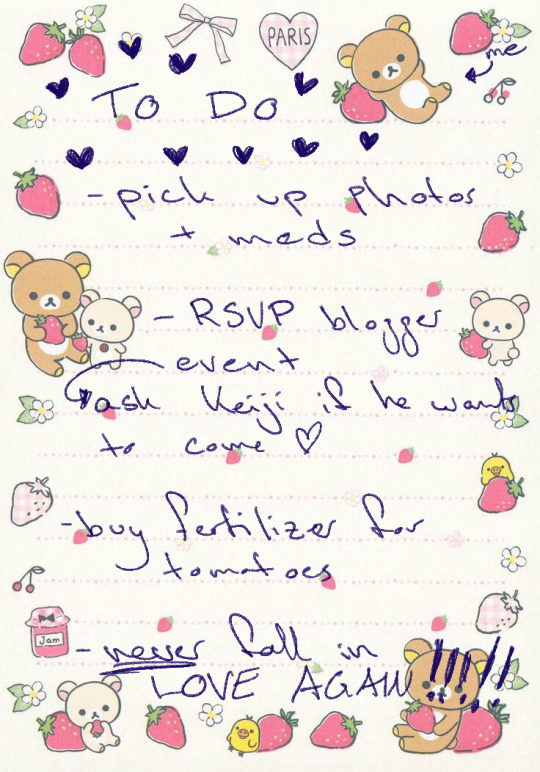 PARIS
me
To Do
- pick up photos
+ meds
- RSVP blogger
event
ask Keiji if he wants
to come ♡
Jam
- buy fertilizer for
tomatoes
- never fall in
LOVE AGAIN!!!!!!